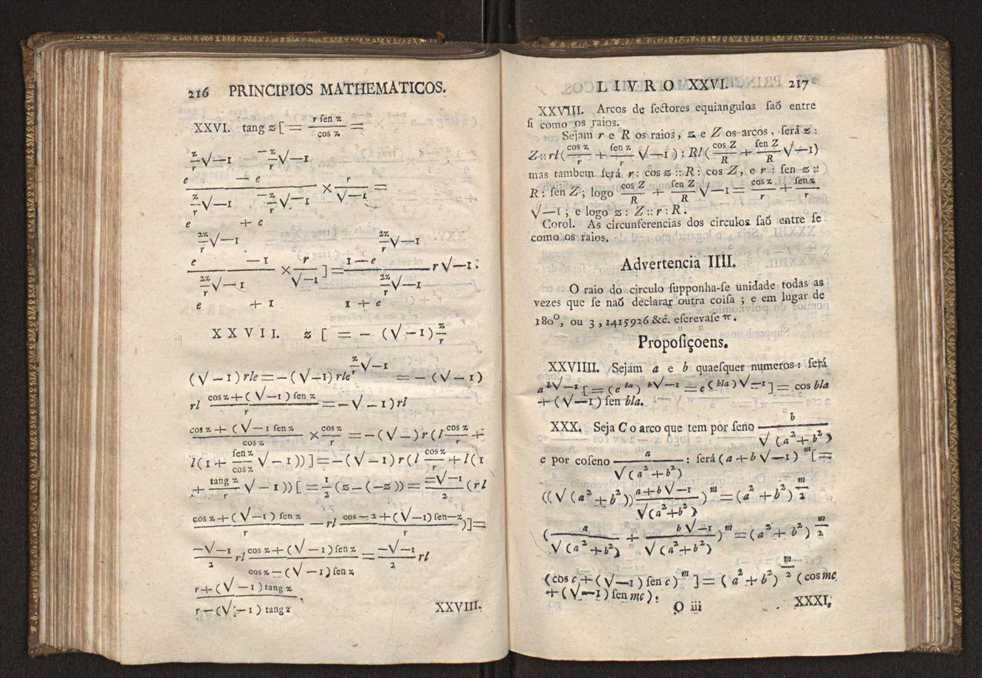 216 PRINCIPIOS MATHEMATICOS.
XXVI. tang z [ = r sen z / cos z =
e^(z/r √−1) − e^(−z/r √−1) / e^(z/r √−1) + e^(−z/r √−1) × r/√−1 =
e^(2z/r √−1) − 1 / e^(2z/r √−1) + 1 × r/√−1 ] = 1 − e^(2z/r √−1) / 1 + e^(2z/r √−1) r √−1.
XXVII. z [ = − (√−1) z/r
(√−1) rle = −(√−1) rle^(z/r √−1) = −(√−1)
rl cos z + (√−1) sen z / r = −√−1) rl
cos z + (√−1 sen z / cos z × cos z / r = −(√−) r (l cos z / r +
l(1 + sen z / cos z √−1))] = −(√−1) r (l cos z / r + l(1
+ tang z / r √−1)) [ = 1/2 (z − (−z)) = −√−1 / 2 (rl
cos z + (√−1) sen z / r − rl cos − z + (√−1) sen − z / r )] =
−√−1 / 2 rl cos z + (√−1) sen z / cos z − (√−1) sen z = −√−1 / 2 rl
r + (√−1) tang z / r − (√−1) tang z .
XXVIII.
LIVRO XXVI. 217
XXVIII. Arcos de sectores equiangulos saõ entre
si como os raios.
Sejam r e R os raios, z e Z os arcos, será z :
Z :: rl ( cos z / r + sen z / r √−1) : Rl ( cos Z / R + sen Z / R √−1)
mas tambem será r : cos z :: R : cos Z, e r : sen z ::
R : sen Z ; logo cos Z / R + sen Z / R √−1 = cos z / r + sen z / r
√−1 ; e logo z : Z :: r : R.
Corol. As circunferencias dos circulos saõ entre se
como os raios.
Advertencia IIII.
O raio do circulo supponha-se unidade todas as
vezes que se naõ declarar outra coisa ; e em lugar de
180°, ou 3,1415926 &c. escrevase π.
Proposiçoens.
XXVIIII. Sejam a e b quaesquer numeros : será
a^(b√−1) [ = (e^(la))^(b√−1) = e^((bla)√−1) ] = cos bla
+ (√−1) sen bla.
XXX. Seja C o arco que tem por seno b / √(a²+b²)
e por coseno a / √(a²+b²) : será (a + b √−1)^m [ =
((√(a²+b²)) a+b√−1 / √(a²+b²) )^m = (a²+b²)^(m/2)
( a / √(a²+b²) + b√−1 / √(a²+b²) )^m = (a²+b²)^(m/2)
(cos c + (√−1) sen c)^m ] = (a²+b²)^(m/2) (cos mc
+ (√−1) sen mc).
O iii XXXI.